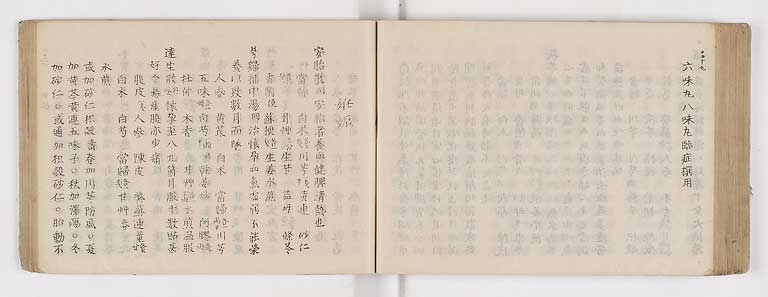 六味丸八味丸臨症撰用
妊娠
安胎散 安胎者養血健脾清熱也
當歸 白朮 川芎 黄連 砂仁
甘艸 生苄 益母 條芩
香附 蘇梗 生姜水煎
芎歸補中湯 治懷孕血氣虚弱不能榮
養以致數月而墜
人參 黄芪 白朮 當歸 川芎
五味 白芍 阿膠
杜仲 木香 甘艸 水煎温服
達生散 懷孕至八九箇月服十數貼甚
好令易産腹亦少痛
腹皮 人參 陳皮 紫蘇連莖
白朮 白芍 當歸 甘艸
水煎
或加砂仁枳殻春加川芎防風○夏
加黄芩黄連五味子○秋加澤瀉○冬
加砂仁○或通加枳殻砂仁○胎動不